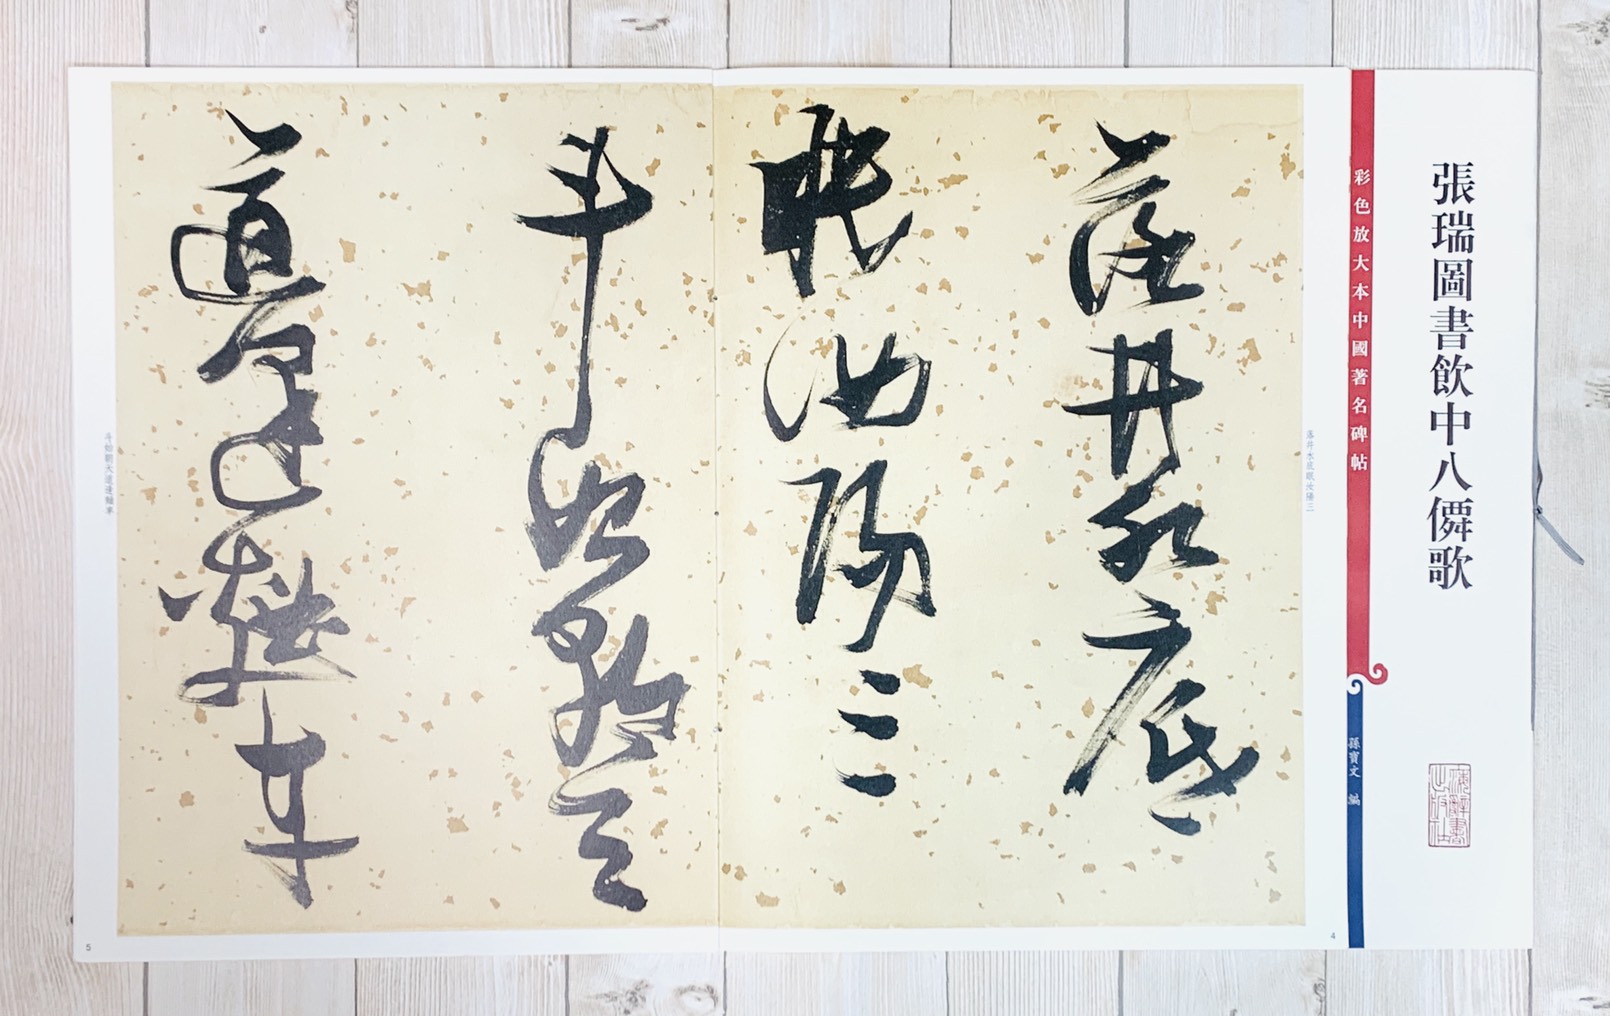 張瑞圖書飲中八僊歌
彩色放大本中國著名碑帖
孫寶文 編
海辭書出版社
落井水底眠汝陽三
落井水底
眠汝陽三
4
斗始朝天
道逢麴車
斗始朝天道逢麴車
5